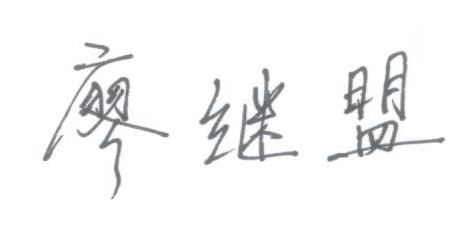 廖继盟